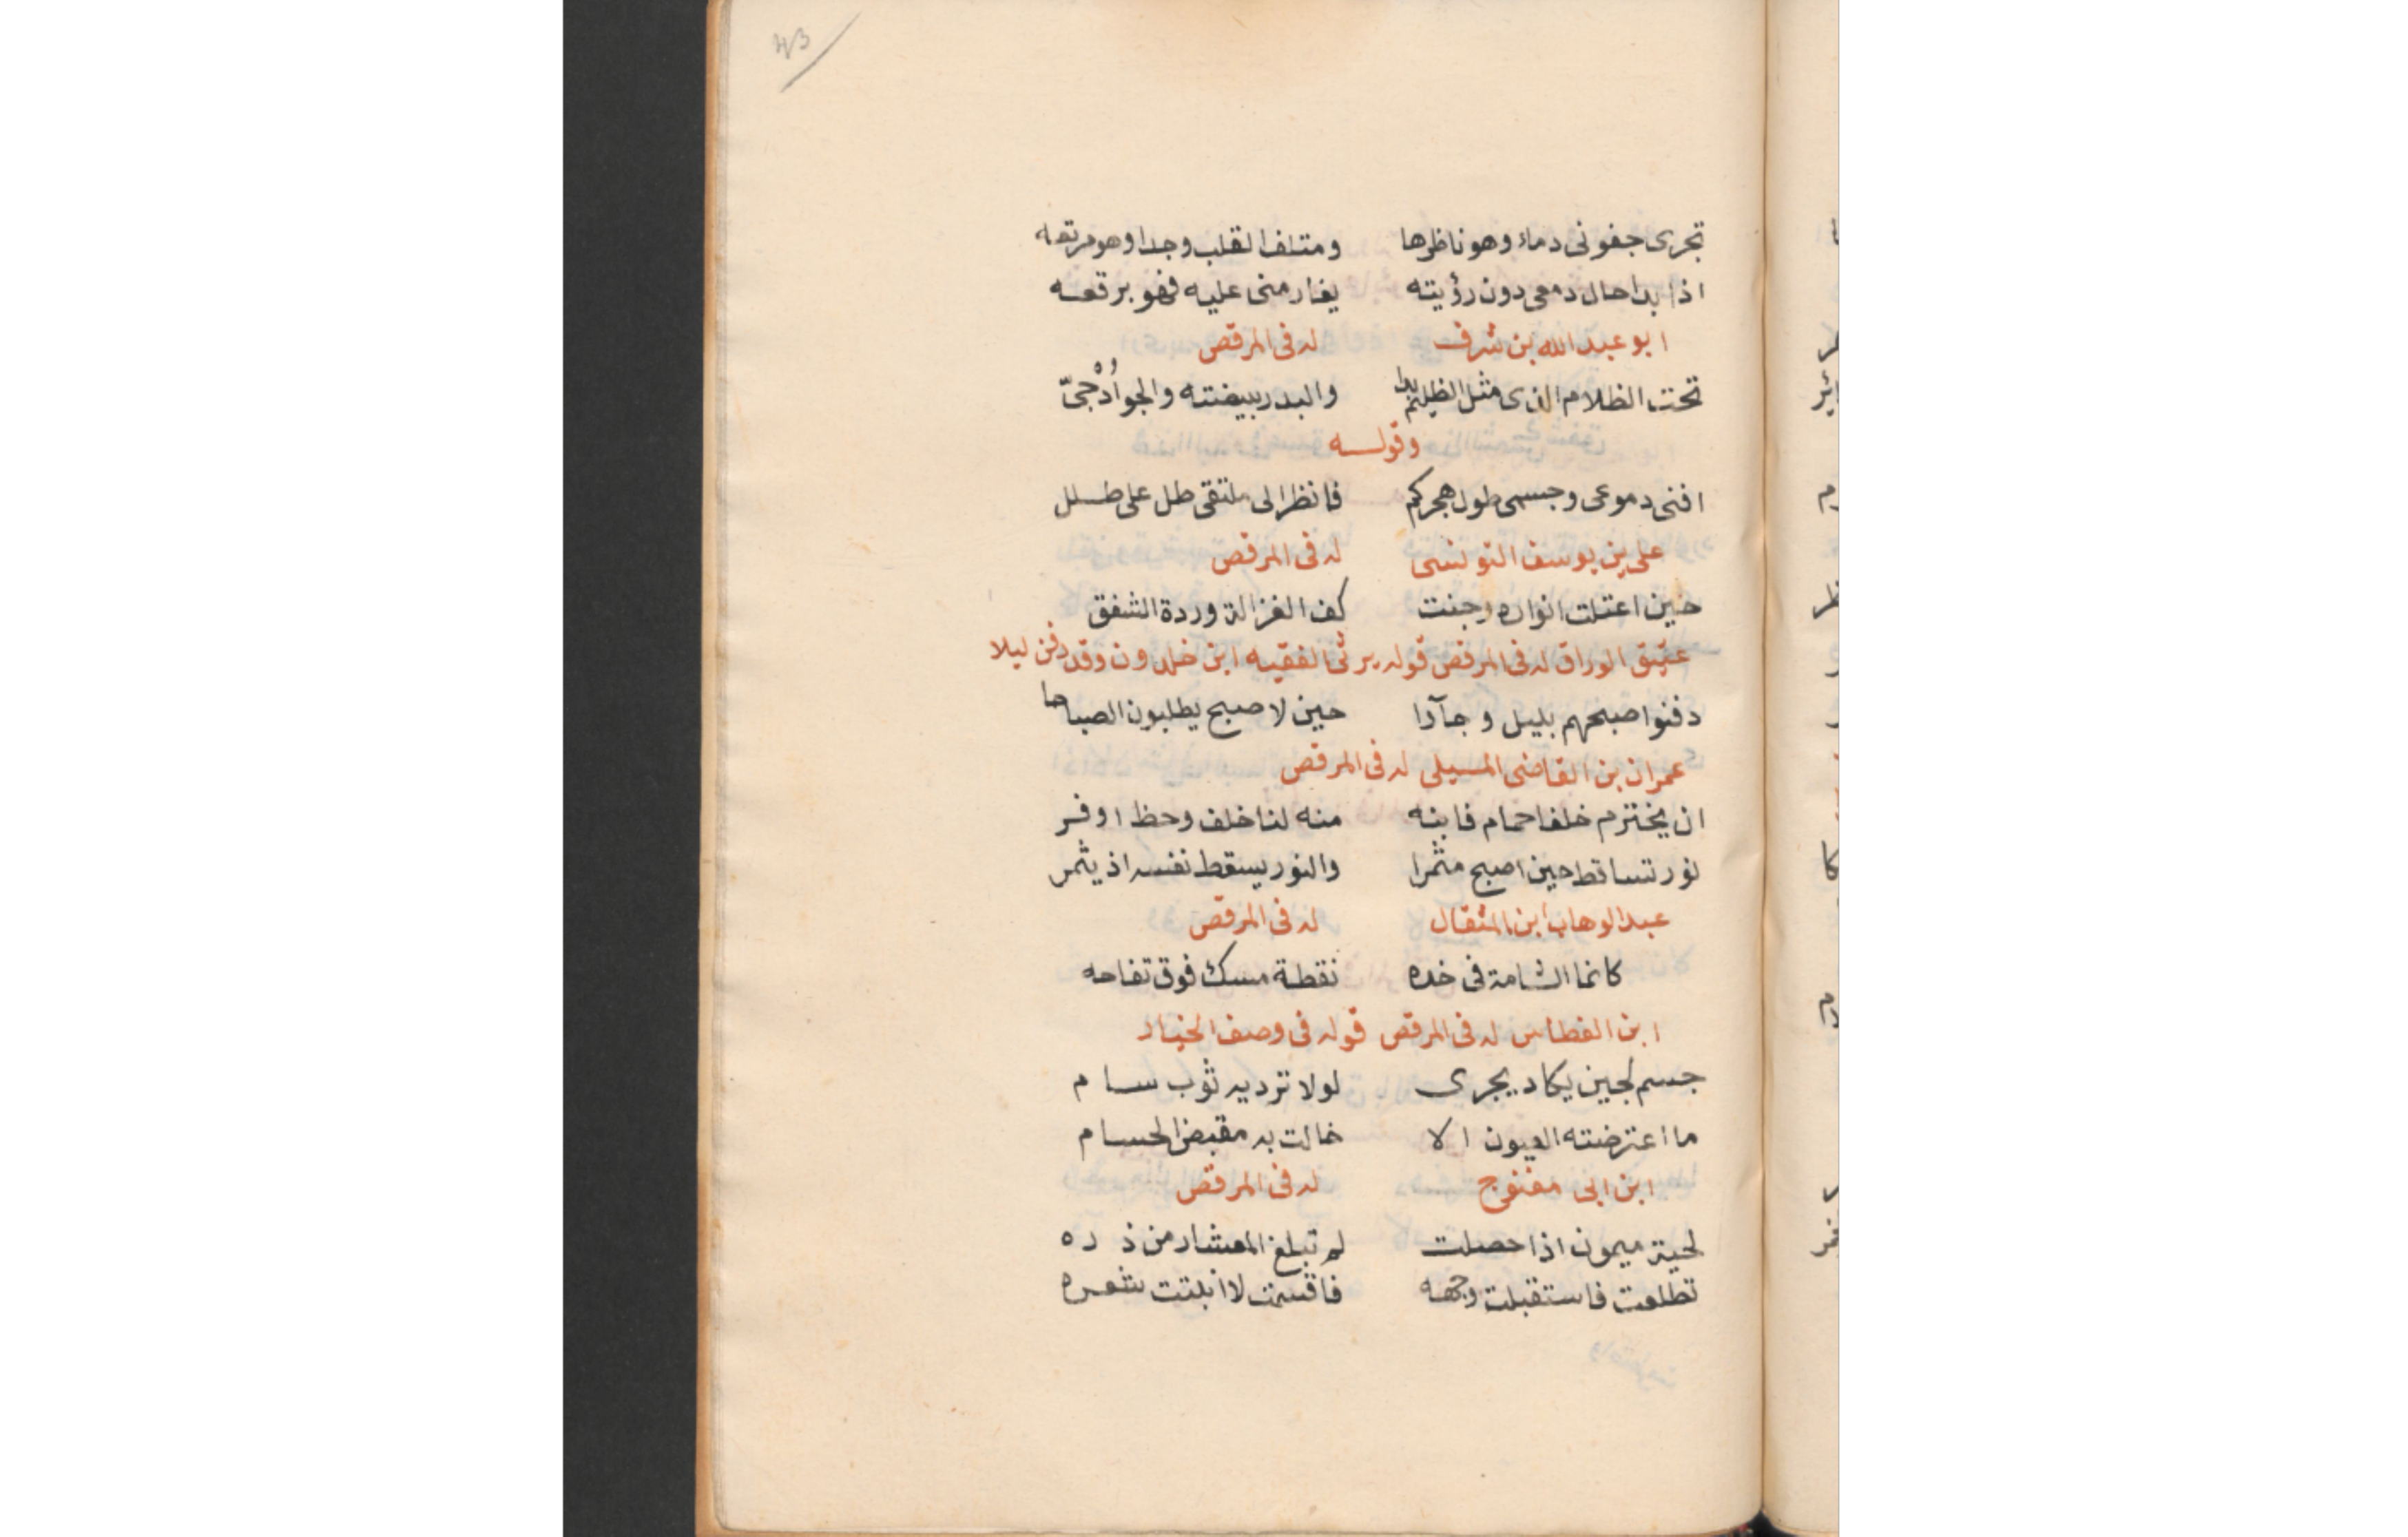 43
تجرى جفونى دماء وهو ناظرها ومتلف القلب وجدا وهو مرتعه
اذا بدا حال دمعى دون رؤيته يغار منى عليه فهو برقعه
ابو عبد الله بن شرف له فى المرقص
تحت الظلام الذى مثل الظليم بدا والبدر بيضته والجو اُدْحىّ
وقوله
افنى دموعى وجسمى طول هجركم فانظر الى ملتقى طل على طلل
على بن يوسف التونسى له فى المرقص
حين اعتلت انواره وجنت كف الغزالة وردة الشفق
عتيق الوراق له فى المرقص قوله يرثى الفقيه ابن خلدون وقد دفن ليلا
دفنوا صبحهم بليل وجآوا حين لا صبح يطلبون الصباحا
عمران بن القاضى المسيلى له فى المرقص
ان يخترم خلفا حمام فابنه منه لنا خلف وحظ اوفر
نور تساقط حين اصبح مثمرا والنور يسقط نفسه اذ يثمر
عبد الوهاب ابن المثقال له فى المرقص
كانما الشامة فى خده نقطة مسك فوق تفاحه
ابن الغطاس له فى المرقص قوله فى وصف الخيار
جسم لجين يكاد يجرى لولا ترديه ثوب سام
ما اعترضته العيون الا خالت به مقبض الحسام
ابن ابى مغنوج له فى المرقص
لحية ميمون اذا حصلت لم تبلغ المعشار من ذره
تطلعت فاستقبلت وجهه فاقسمت لا انبتت شعره